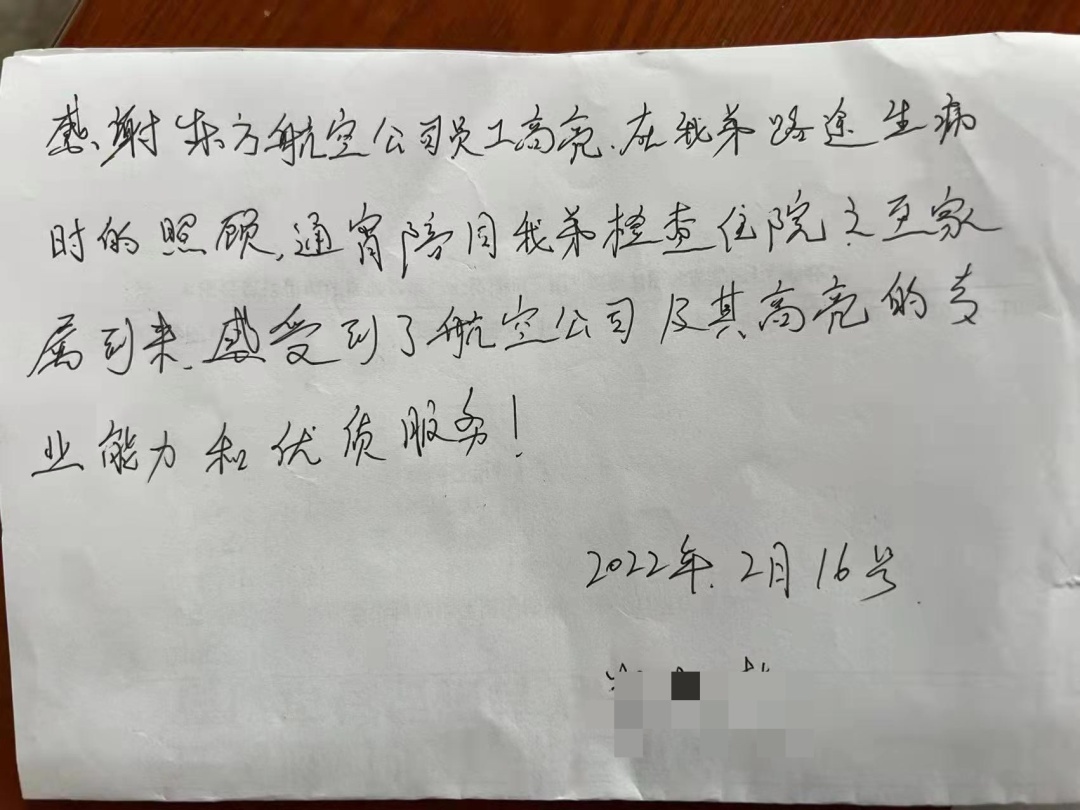 感谢东方航空公司员工高亮.在我弟路途生病
时的照顾,通宵陪同我弟检查住院之至家
属到来.感受到了航空公司及其高亮的专
业能力和优质服务!
2022年.2月16号.